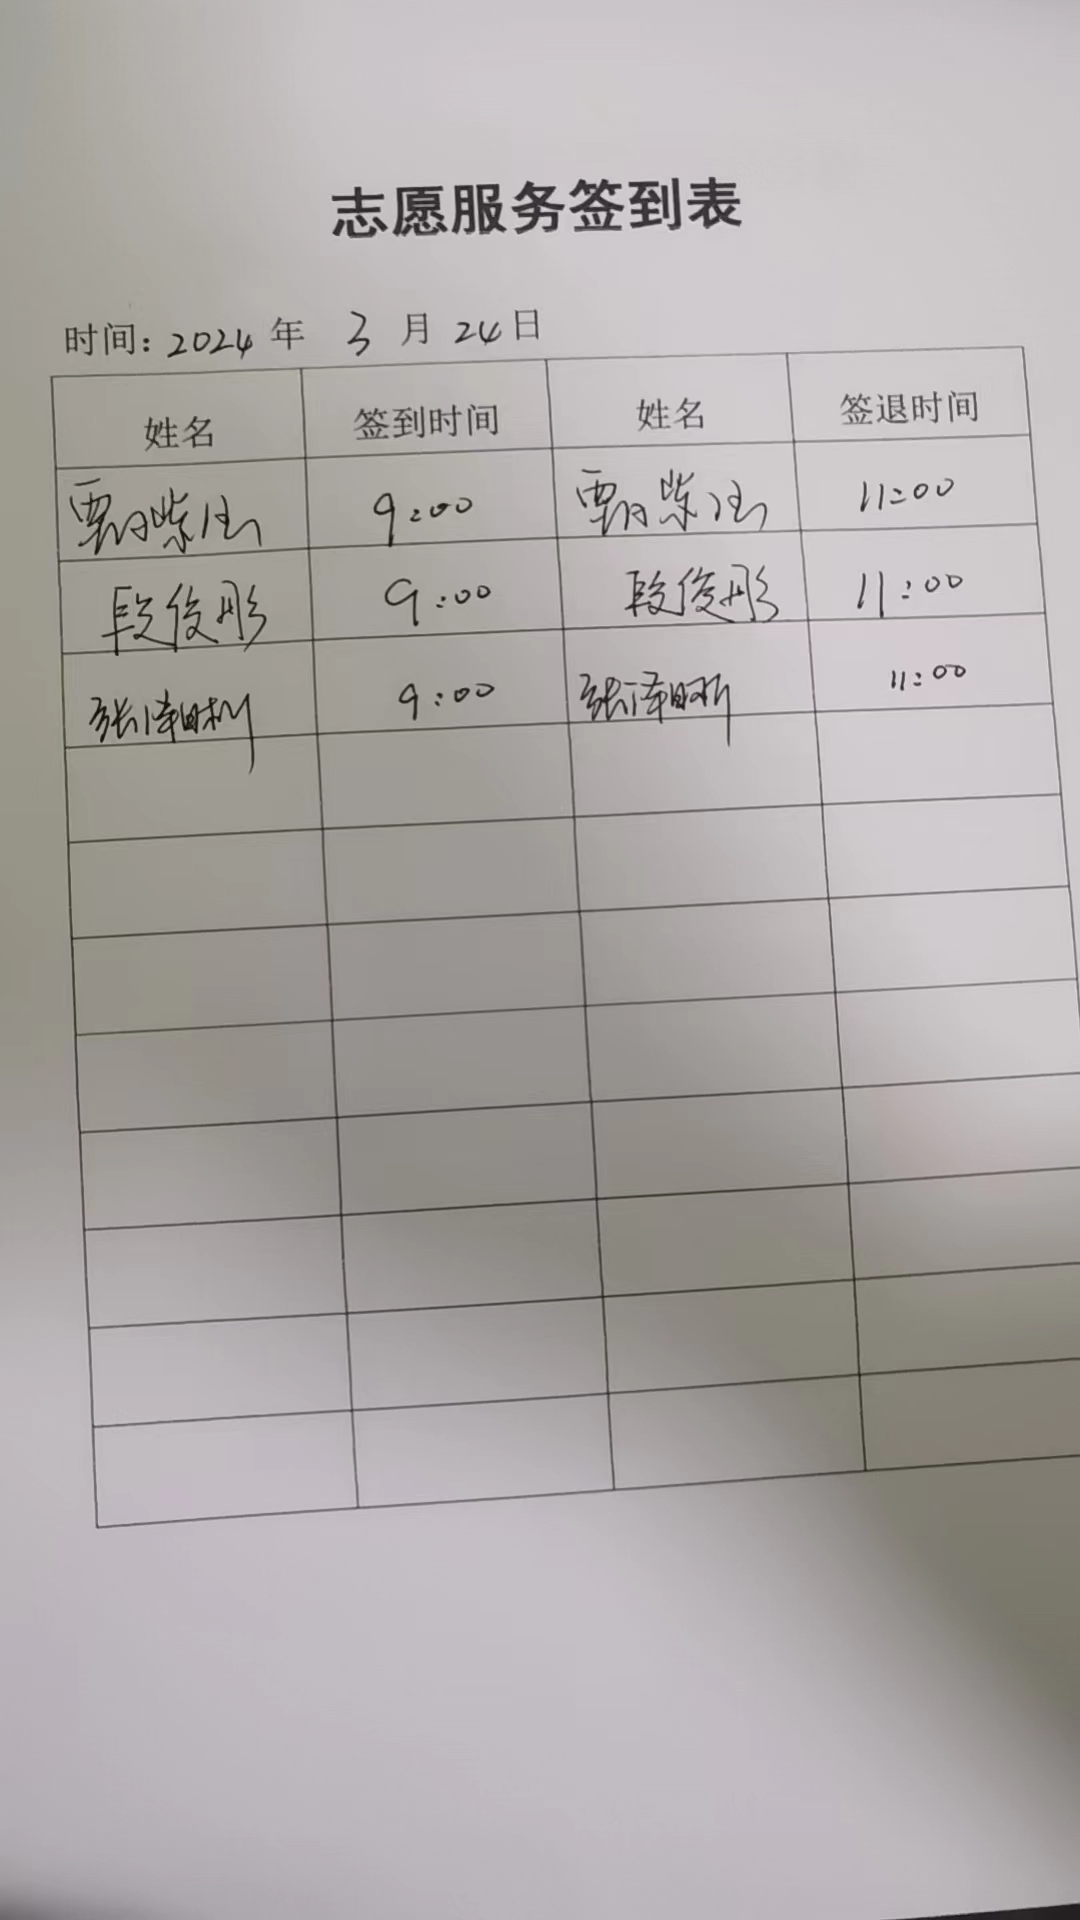 志愿服务签到表
时间：2024 年 3 月 24 日
姓名 签到时间 姓名 签退时间
9:00 11:00
段俊彤 9:00 段俊彤 11:00
张泽 9:00 张泽 11:00